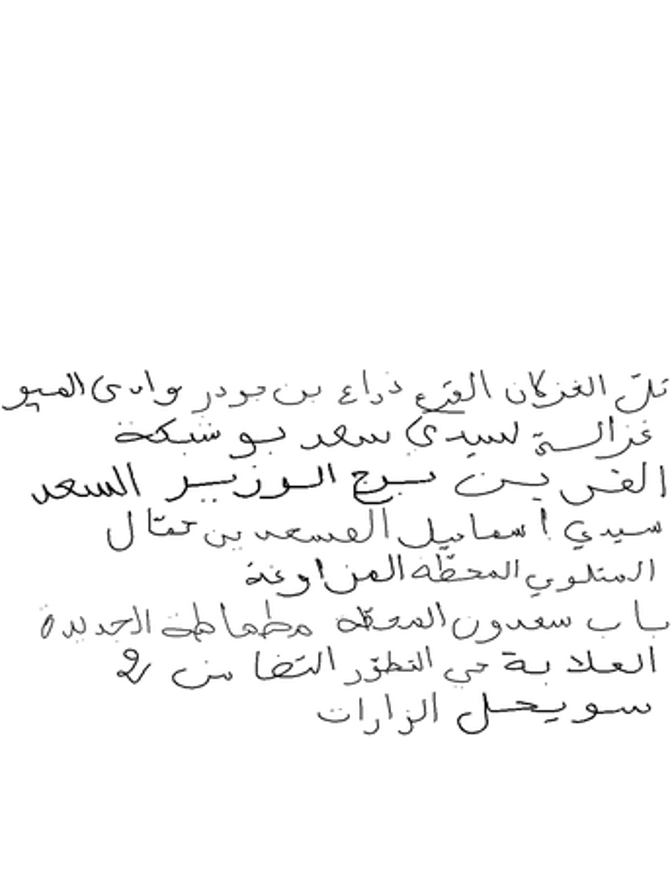 تلّ الغزلان القرع ذراع بن جودر وادي
غزالة لسيدي سعد بو شبكة
بن برج الوزير السعد
سيدي اسماعيل بن عمّال
المتلوي المحطّة المزاوغة
باب سعدون المحطّة مطماطة الجديدة
العلابة حي التطوّر التضامن 2
سويحل الزارات